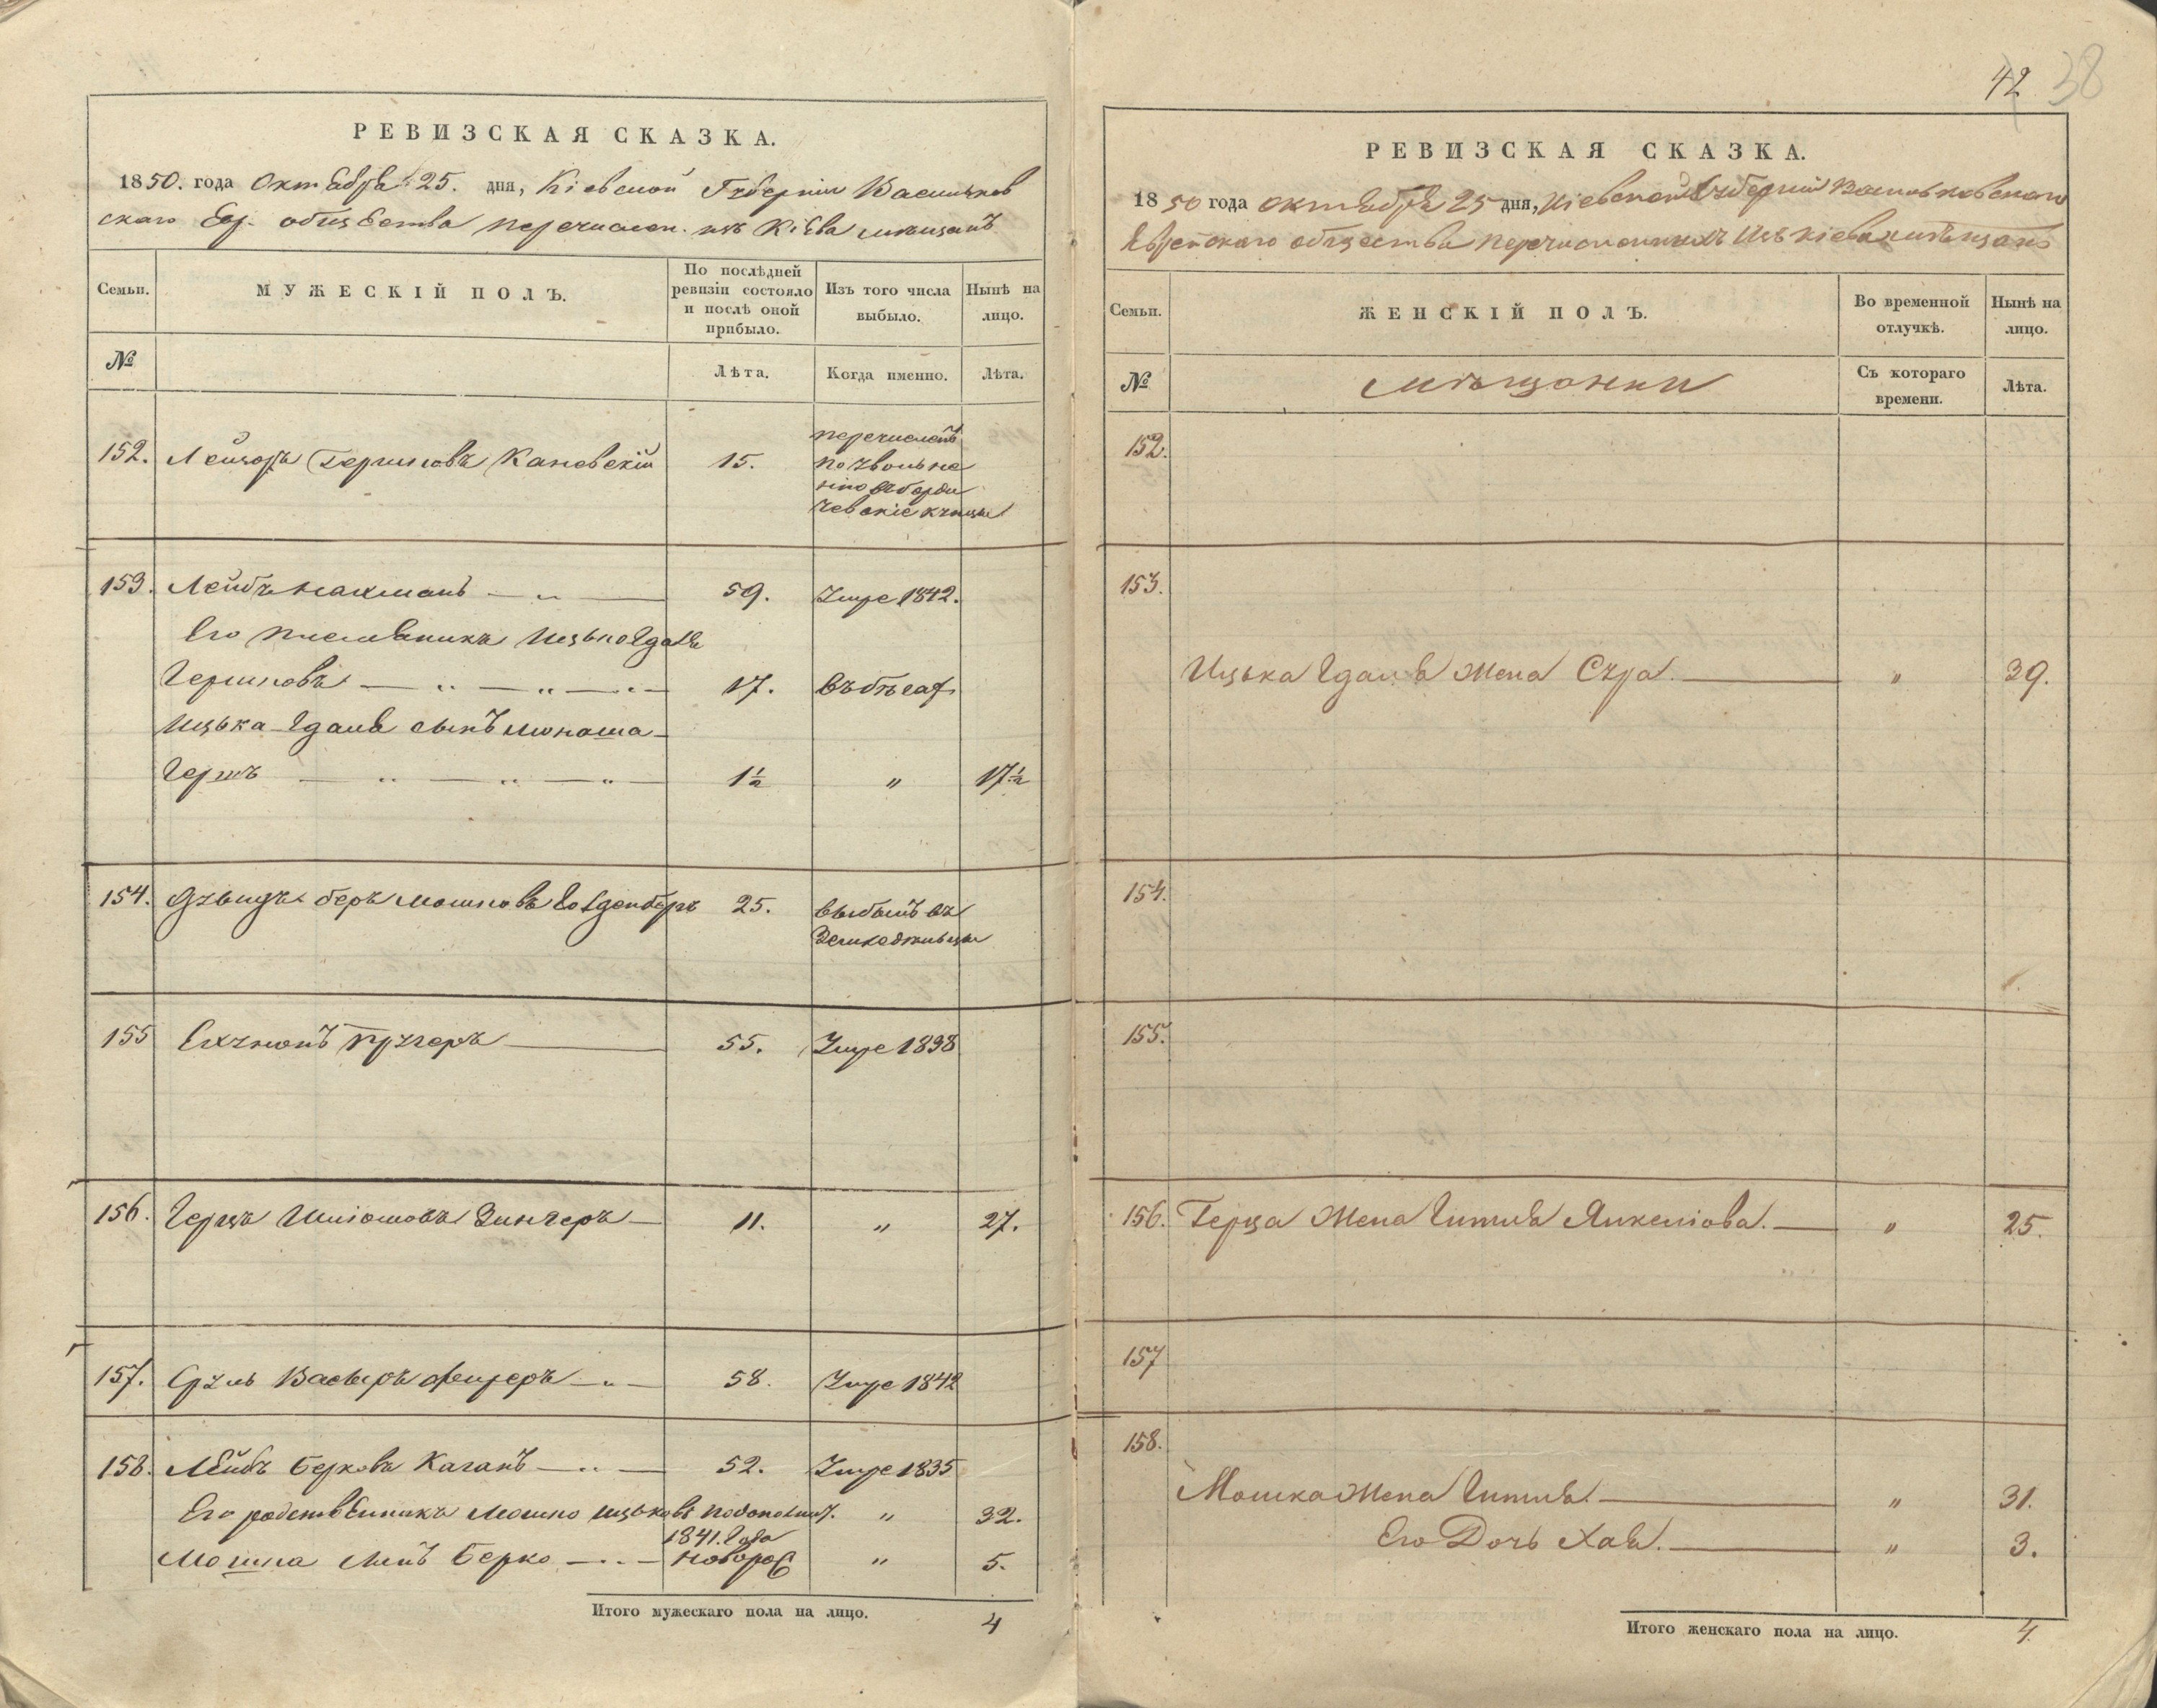 РЕВИЗСКАЯ СКАЗКА.
1850. года Октября 25. дня, Кіевской Губерніи Васильков
скаго Евр. общества перечислен. изъ Кіева мѣщанъ
Семьи.
МУЖЕСКІЙ ПОЛЪ.
По послѣдней ревизіи состояло и послѣ оной прибыло.
Изъ того числа выбыло.
Нынѣ на лицо.
№
Лѣта.
Когда именно.
Лѣта.
152. Лейзоръ Гершковъ Каневскій 15. перечисленъ
по увольне
нію въ Берди
чевскіе купцы
153. Лейбъ Нахманъ 59. Умре 1842.
Его племянникъ Ицько Гдаля
Гершковъ 17. въ бѣгах
Ицька Гдаля сынъ Монаша
Гершъ 1½ " 17½
154. Дувидъ Беръ МошковъГолденберъ 25. выбылъ въ
155 Елхунонъ 55. Умре 1838
156. Герцъ Шліомовъ Зингеръ 11. " 27.
157. Сруль 58. Умре 1842
158. Лейбъ Берковъ Каганъ 52. Умре 1835
Его родственникъ Мошко Ицьковъ " 32.
1841. Года
Мошка сынъ Берко новорož " 5.
Итого мужескаго пола на лицо. 4
42 38
РЕВИЗСКАЯ СКАЗКА.
1850 года октября 25 дня, Кіевской Губерніи Васильковскаго
Еврейскаго общества перечисленныхъ изъ Кіева мѣщанъ
Семьи.
ЖЕНСКІЙ ПОЛЪ.
Во временной отлучкѣ.
Нынѣ на лицо.
№
мѣщанки
Съ котораго времени.
Лѣта.
152.
153.
Ицька Гдаля жена Сура. " 39.
154.
155.
156. Герца жена Гитля Янкеліова. " 25.
157
158.
Мошка жена Гитля. " 31.
Его Дочь Хая. " 3.
Итого женскаго пола на лицо. 4.